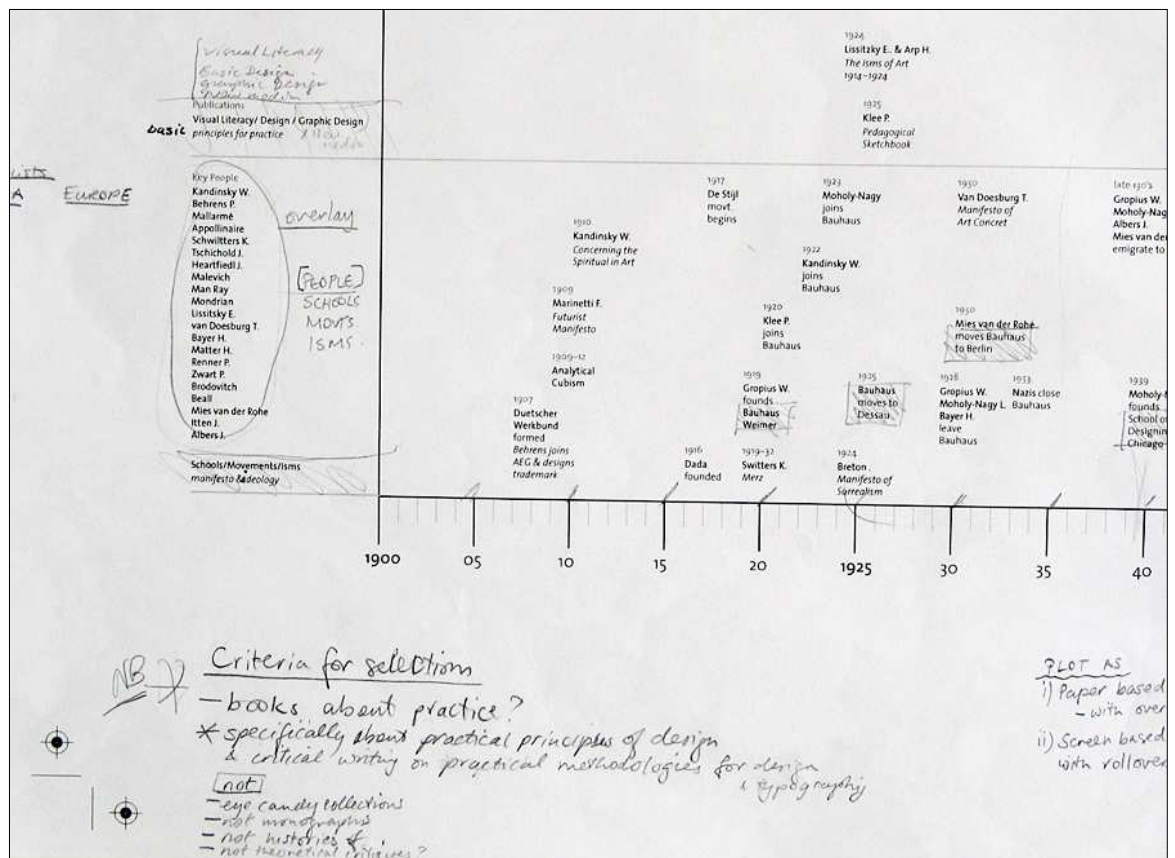 Visual Literacy
Basic Design
Graphic Design
Publications
Visual Literacy/ Design / Graphic Design
basic principles for practice
1924
Lissitzky E. & Arp H.
The isms of Art
1914–1924
1925
Klee P.
Pedagogical
Sketchbook
EUROPE
Key People
Kandinsky W.
Behrens P.
Mallarmé
Appollinaire
Schwiltters K.
Tschichold J.
Heartfiedl J.
Malevich
Man Ray
Mondrian
Lissitsky E.
van Doesburg T.
Bayer H.
Matter H.
Renner P.
Zwart P.
Brodovitch
Beall
Mies van der Rohe
Itten J.
Albers J.
overlay
[PEOPLE]
SCHOOLS
MOVTS.
ISMS.
Schools/Movements/Isms
manifesto & ideology
1907
Duetscher
Werkbund
formed
Behrens joins
AEG & designs
trademark
1909–12
Analytical
Cubism
1909
Marinetti F.
Futurist
Manifesto
1910
Kandinsky W.
Concerning the
Spiritual in Art
1916
Dada
founded
1917
De Stijl
movt.
begins
1919–32
Switters K.
Merz
1919
Gropius W.
founds
Bauhaus
Weimer
1920
Klee P.
joins
Bauhaus
1922
Kandinsky W.
joins
Bauhaus
1923
Moholy-Nagy
joins
Bauhaus
1924
Breton .
Manifesto of
Surrealism
1925
Bauhaus
moves to
Dessau
1928
Gropius W.
Moholy-Nagy L.
Bayer H.
leave
Bauhaus
1930
Van Doesburg T.
Manifesto of
Art Concret
1930
Mies van der Rohe
moves Bauhaus
to Berlin
1933
Nazis close
Bauhaus
late 130's
Gropius W.
Moholy-Nag
Albers J.
Mies van der
emigrate to
1939
Moholy-
founds
School o
Designin
Chicago
1900 05 10 15 20 1925 30 35 40
NB
Criteria for selections
– books about practice?
* specifically about practical principles of design
& critical writing on practical methodologies for design
& typography
not
– eye candy collections
– not monographs
– not histories of
– not theoretical critiques?
PLOT AS
i) Paper based
– with over
ii) Screen based
with rollover